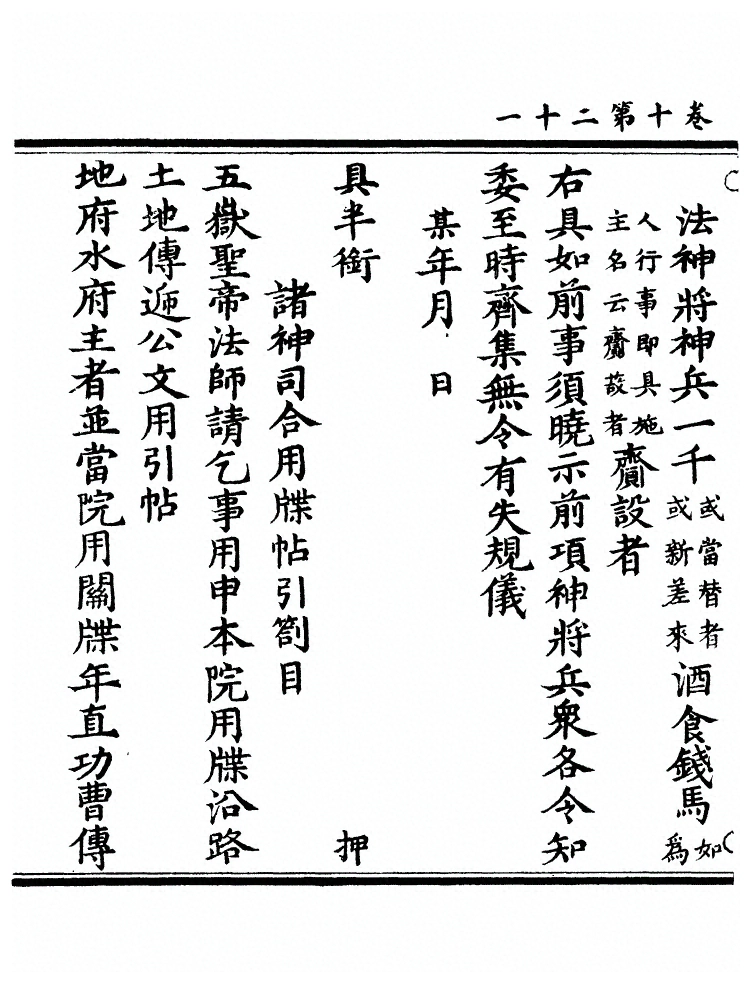 卷十第二十一
法神將神兵一千或當替者或新差來酒食錢馬如為
人行事即具施主名云齎者齎設者
右具如前事須曉示前項神將兵眾各令知
委至時齊集無令有失規儀
某年月日
具半銜 押
諸神司合用牒帖引劄目
五嶽聖帝法師請乞事用申本院用牒沿路
土地傳遞公文用引帖
地府水府主者並當院用關牒年直功曹傳